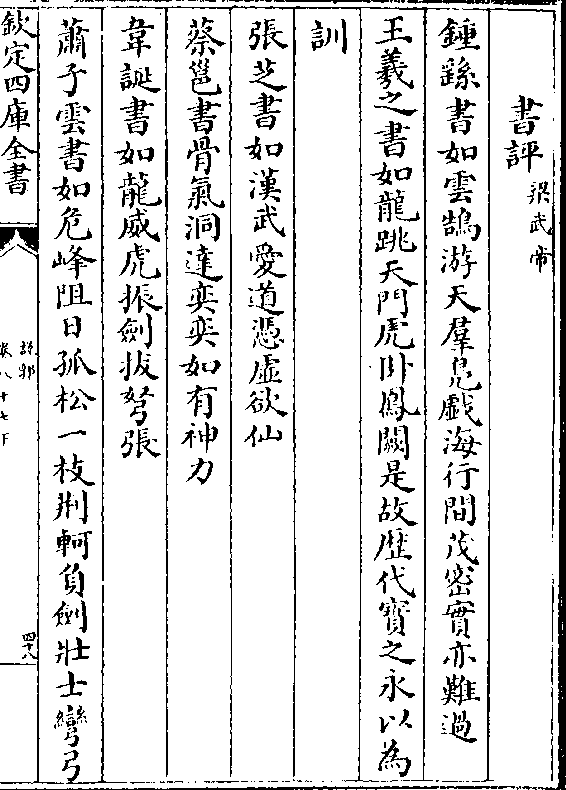 書評梁武帝
鍾繇書如雲鵠游天羣鳬戯海行間茂密實亦難過
王羲之書如龍跳天門虎卧鳳闕是故歴代寳之永以為
訓
張芝書如漢武愛道憑虛欲仙
蔡邕書骨氣洞達奕奕如有神力
韋誕書如龍威虎振劍拔弩張
蕭子雲書如危峰阻日孤松一枝荆軻負劍壯士彎弓
欽定四庫全書
卷八十七下
四十八